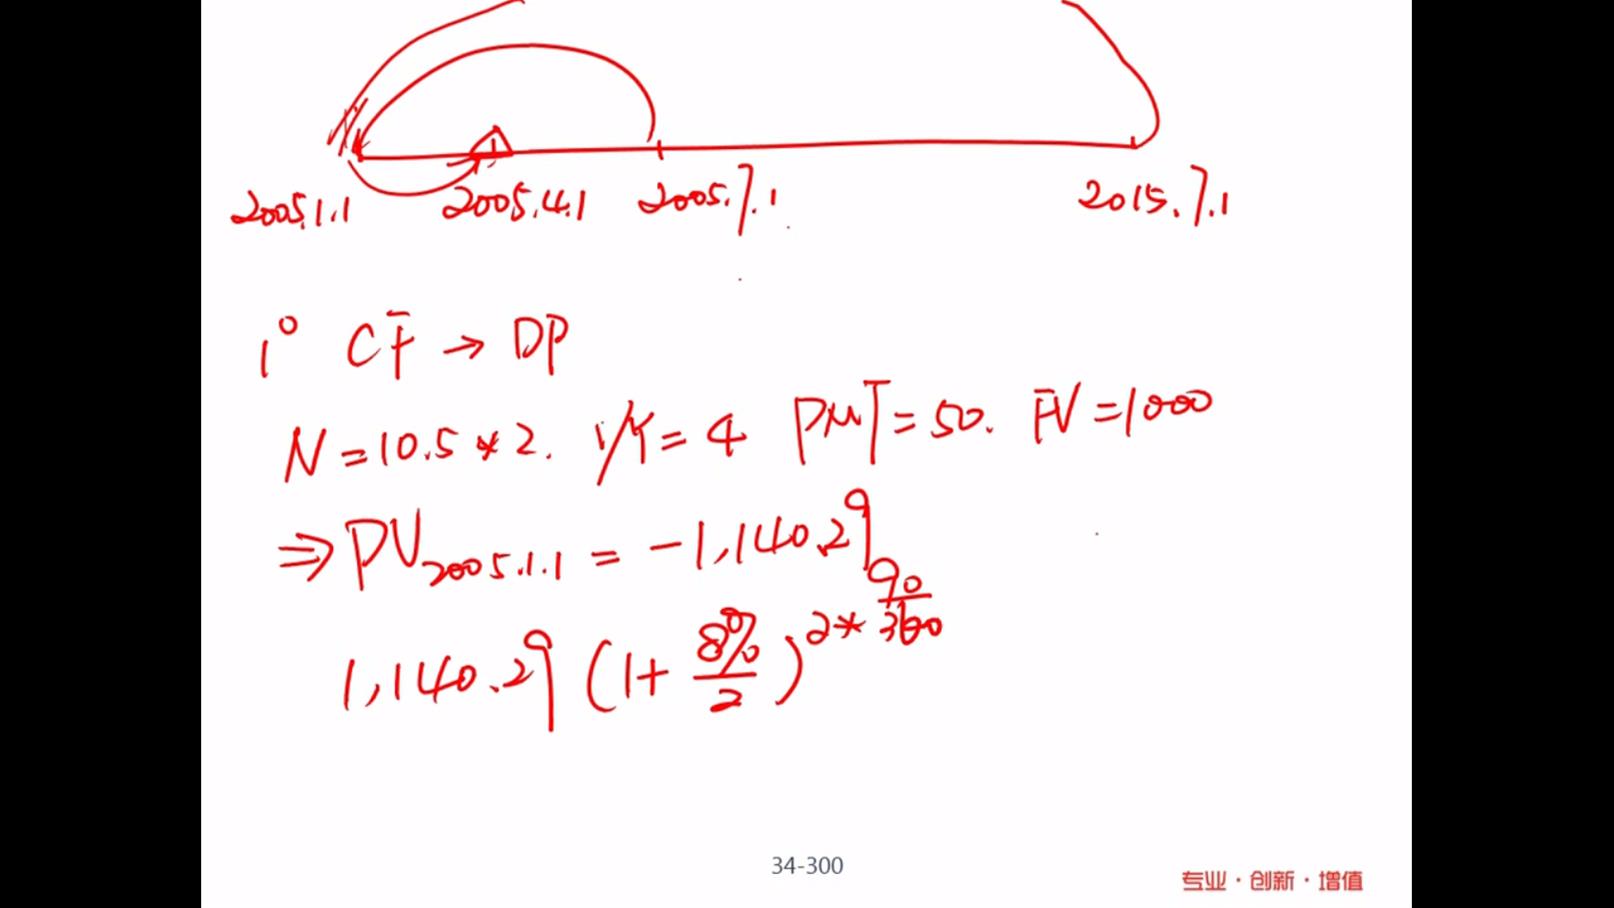 2005.1.1 2005.4.1 2005.7.1 2015.7.1
1° CF → DP
N = 10.5 * 2. I/Y = 4 PMT = 50. FV = 1000
⇒ PV2005.1.1 = -1,140.29
1,140.29 (1 + 8%/2)^2*90/360
34-300
专业·创新·增值